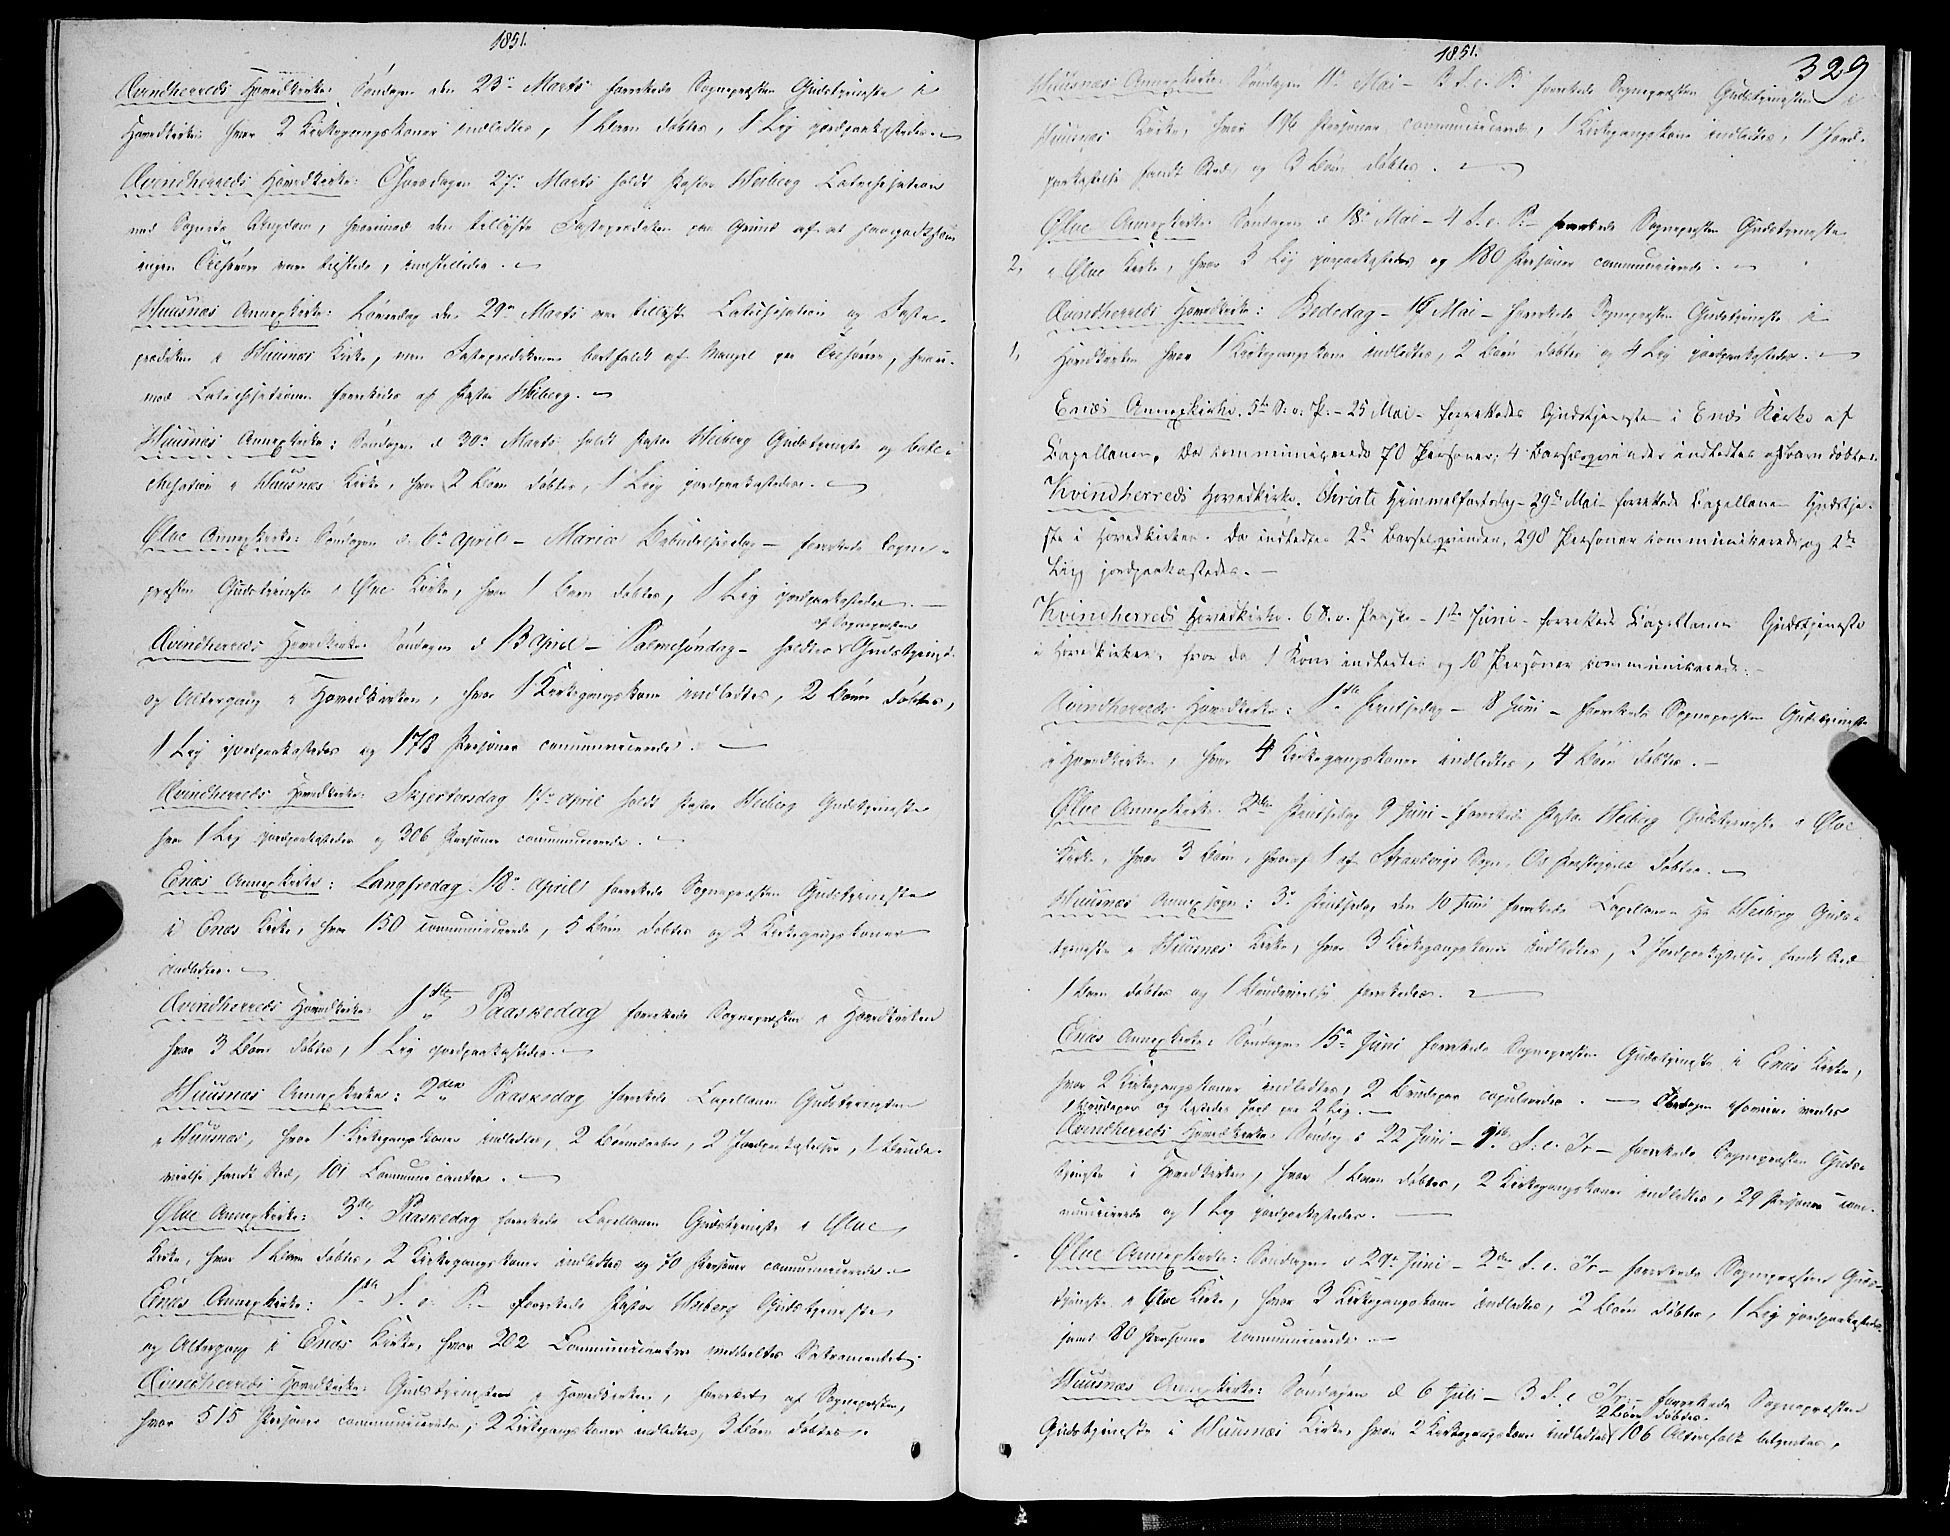 1851.
Qvindherreds Hovedkirke: Søndagen den 23de Marts forrettede Sognepræsten Gudstjeneste i
Hovedkirken hvor 2 Kirkegangskoner indledtes, 1 Barn døbtes, 1 Lig jordpaakastedes.
Qvindherreds Hovedkirke: Thorsdagen 27de Marts holdt Pastor Heiberg Catechisation
med Sognets Ungdom, hvorimod den tillyste Fasteprædiken paa Grund af at
ingen Tilhørere vare tilstede, indstilledes.
Huusnæs Annexkirke: Løverdag den 29de Marts var tillyst Catechisation og Faste-
prædiken i Huusnæs Kirke, men Fasteprædikenen bortfaldt af Mangel paa Tilhørere, hvori-
mod Catechisationen forrettedes af Pastor Heiberg.
Huusnæs Annexkirke: Søndagen d 30te Marts holdt Pastor Heiberg Gudstjeneste og Cate-
chisation i Huusnæs Kirke, hvor 2 Børn døbtes, 1 Liig jordpaakastedes.
Ølve Annexkirke: Søndagen d. 6te April - Mariæ Bebudelsesdag - forrettede Sogne-
præsten Gudstjeneste i Ølve Kirke, hvor 1 Barn døbtes, 1 Lig jordpaakastedes.
af Sognepræsten
Qvindherreds Hovedkirke Søndagen d 13 April - Palmesøndag - holdtes Gudstjeneste
og Altergang i Hovedkirken, hvor 1 Kirkegangskone indledtes, 2 Børn døbtes,
1 Lig jordpaakastedes og 178 Personer communicerede.
Qvindherreds Hovedkirke: Skjertorsdag 17de April holdt Pastor Heiberg Gudstjeneste
hvor 1 Lig jordpaakastedes og 306 Personer communicerede.
Enæs Annexkirke: Langfredag 18de April forrettede Sognepræsten Gudstjeneste
i Enæs Kirke, hvor 150 communicerede, 5 Børn døbtes og 2 Kirkegangskoner
indledtes.
Qvindherreds Hovedkirke: 1ste Paaskedag forrettede Sognepræsten i Hovedkirken
hvor 3 Børn døbtes, 1 Lig jordpaakastedes.
Huusnæs Annexkirke: 2den Paaskedag forrettede Capellanen Gudstjenesten
i Huusnæs, hvor 1 Kirkegangskone indledtes, 2 Barnedaaber, 2 Jordpaakastelser, 1 Brude-
vielse fandt Sted, 101 Communicantere.
Ølve Annexkirke: 3die Paaskedag forrettede Capellanen Gudstjeneste i Ølve
Kirke, hvor 1 Barn døbtes, 2 Kirkegangskoner indledtes og 70 Personer communicerede.
Enæs Annexkirke: 1ste S. e. P. - forrettede Pastor Heiberg Gudstjeneste
og Altergang i Enæs Kirke, hvor 202 Communicantere meddeeltes Sakramentet.
Qvindherreds Hovedkirke: Gudstjenesten i Hovedkirken, forrettet af Sognepræsten,
hvor 515 Personer communicerede, 2 Kirkegangskoner indledtes, 3 Børn døbtes.
1851.
329
Huusnæs Annexkirke Søndagen 11te Mai - 3 S. e. P. forrettede Sognepræsten Gudstjenesten i
Huusnæs Kirke, hvor 196 Personer communicerede, 1 Kirkegangskone indledtes, 1 Jord-
paakastelse fandt Sted og 3 Børn døbtes.
Ølve Annexkirke Søndagen d 18de Mai - 4 S. e. P. - forrettede Sognepræsten Gudstjeneste
2, i Ølve Kirke, hvor 3 Lig jordpaakastedes og 180 Personer communicerede.
Qvindherreds Hovedkirke: Bededag - 16 Mai - forrettede Sognepræsten Gudstjeneste i
1, Hovedkirken hvor 1 Kirkegangskone indledtes, 2 Børn døbtes og 4 Lig jordpaakastedes.
Enæs Annexkirke. 5te S. e. P. - 25 Mai - forrettedes Gudstjenesten i Enæs Kirke af
Capellanen. Der communicerede 70 Personer; 4 Barselqvinder indledtes og Barn døbtes.
Kvindherreds Hovedkirke. Christi Himmelfartsdag - 29de Mai - forrettede Capellanen Gudstje-
ste i Hovedkirken. Da indledtes 2de Barselqvinder, 298 Personer kommunicerede og 2de
Liig jordpaakastedes. -
Kvindherreds Hovedkirke. 6 S. e. Paaske - 1ste Juni - forrettede Capellanen Gudstjeneste
i Hovedkirken, hvor da 1 Kone indledtes og 10 Personer kommunicerede. -
Qvindherreds Hovedkirke: 1ste Pintsedag - 8 Juni - forrettede Sognepræsten Gudstjeneste
i Hovedkirken, hvor 4 Kirkegangskoner indledtes, 4 Børn døbtes. -
Ølve Annexkirke. 2den Pintsedag 9 Juni - forrettede Pastor Heiberg Gudstjeneste i Ølve
Kirke, hvor 3 Børn, hvoraf 1 af Strandvigs Sogn, Os Præstegjæld døbtes.
Huusnæs Annexsogn: 3die Pintsedag den 10 Juni forrettede Capellanen Hr Heiberg Guds-
tjeneste i Huusnæs Kirke, hvor 3 Kirkegangskoner indledtes, 2 Jordpaakastelser fandt Sted
1 Barn døbtes og 1 Brudevielse forrettedes.
Enæs Annexkirke: Søndagen 15de Juni forrettede Sognepræsten Gudstjeneste i Enæs Kirke,
hvor 2 Kirkegangskoner indledtes, 2 Brudepar copuleredes. -
1 Brudepar og kastedes Jord paa 2 Lig. -
Qvindherreds Hovedkirke Søndag d 22 Juni - 1ste S. e. Tr - forrettede Sognepræsten Guds-
tjeneste i Hovedkirken, hvor 1 Barn døbtes, 2 Kirkegangskoner indledtes, 29 Personer com-
municerede og 1 Lig jordpaakastedes.
Ølve Annexkirke: Søndagen d 29de Juni - 2den S. e. Tr - forrettede Sognepræsten Guds-
tjeneste i Ølve Kirke, hvor 3 Kirkegangskoner indledtes, 2 Børn døbtes, 1 Lig jordpaakastedes
samt 80 Personer communicerede. -
Huusnæs Annexkirke: Søndagen d 6 Juli - 3 S. e Tr. - forrettede Sognepræsten
2 Børn døbtes.
Gudstjeneste i Huusnæs Kirke, hvor 2 Kirkegangskoner indledtes 106 Altersfolk betjentes,